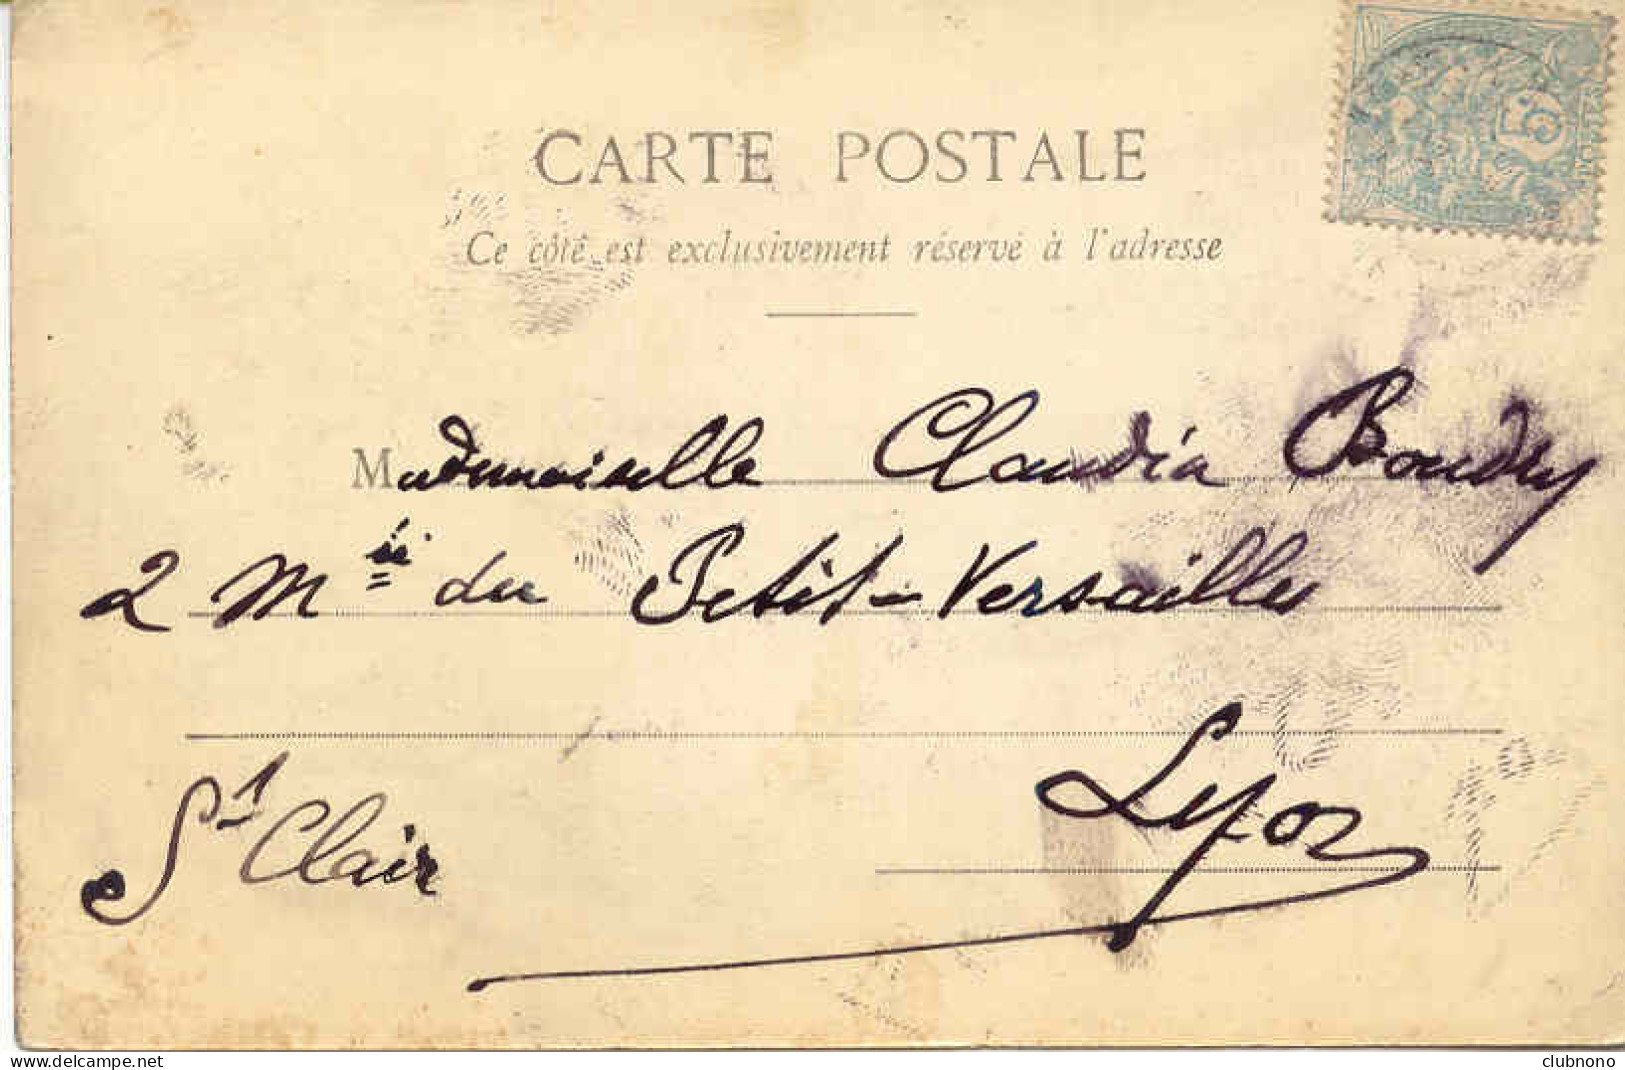 CARTE POSTALE
Ce côté est exclusivement réservé à l'adresse
5
Mademoiselle Claudia Boudry
2 Mtée du Petit-Versailles
St Clair
Lyon
clubnono